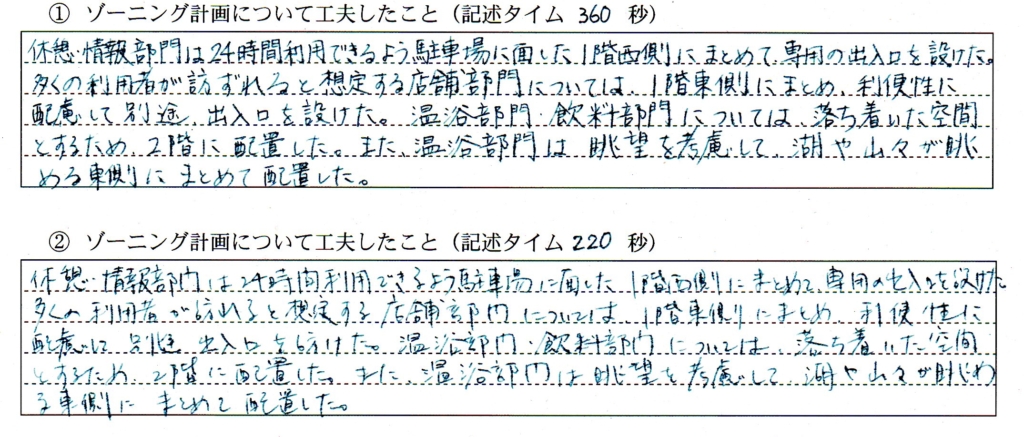 ① ゾーニング計画について工夫したこと（記述タイム 360 秒）
休憩・情報部門は24時間利用できるよう駐車場に面した1階西側にまとめて、専用の出入口を設けた。
多くの利用者が訪ずれると想定する店舗部門については、1階東側にまとめ、利便性に
配慮して別途、出入口を設けた。温浴部門・飲料部門については、落ち着いた空間
とするため、2階に配置した。また、温浴部門は眺望を考慮して、湖や山々が眺
める東側にまとめて配置した。
② ゾーニング計画について工夫したこと（記述タイム 220 秒）
休憩・情報部門は24時間利用できるよう駐車場に面した1階西側にまとめて、専用の出入口を設けた
多くの利用者が訪れると想定する店舗部門については、1階東側にまとめ、利便性に
配慮して別途、出入口を設けた。温浴部門・飲料部門については、落ち着いた空間
とするため、2階に配置した。また、温浴部門は眺望を考慮して、湖や山々が眺め
る東側にまとめて配置した。